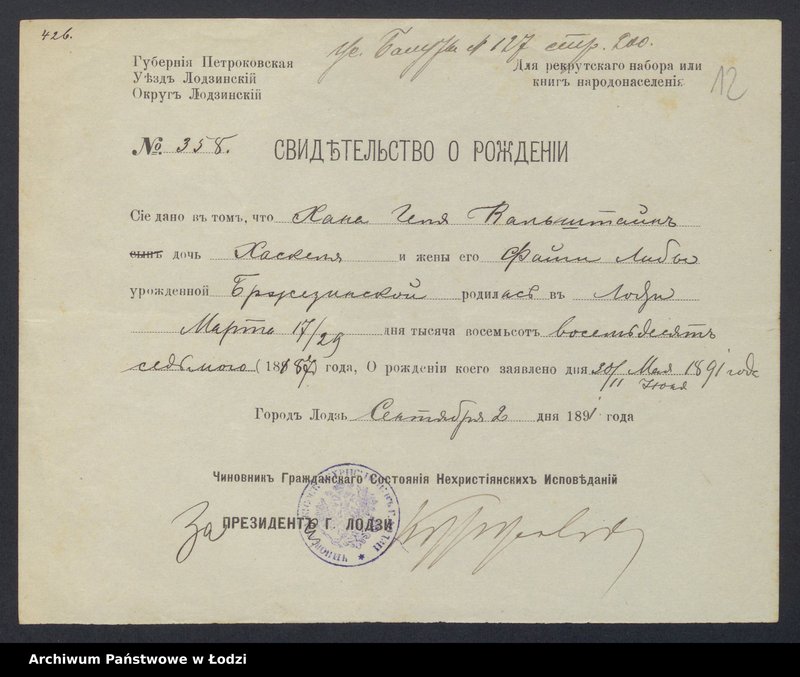 426.
Балуты № 127 стр. 200.
Губернія Петроковская
Уѣздъ Лодзинскій
Округъ Лодзинскій
Для рекрутскаго набора или
книгъ народонаселенія
12
№ 358.
СВИДѢТЕЛЬСТВО О РОЖДЕНІИ
Сіе дано въ томъ, что Хана Геля Вальштайнъ
сынъ дочь Хаскеля и жены его Файги Либы
урожденной Бржезинской родилась въ Лодзи
Марта 17/29 дня тысяча восемьсотъ восемьдесятъ
седьмого (1887) года, О рожденіи коего заявлено дня 30/11 Мая 1891 года
Іюня
Городъ Лодзь Сентября 2 дня 1891 года
Чиновникъ Гражданскаго Состоянія Нехристіянскихъ Исповѣданій
За ПРЕЗИДЕНТЪ Г. ЛОДЗИ
Archiwum Państwowe w Łodzi